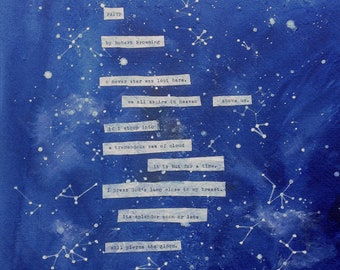 FAITH
by Robert Browning
a star was lost here.
we all aspire to heaven above us.
If I stoop into
a tremendous sea of cloud
it is but for a time.
I press God's lamp close to my breast.
Its splendor soon or late
will pierce the gloom.